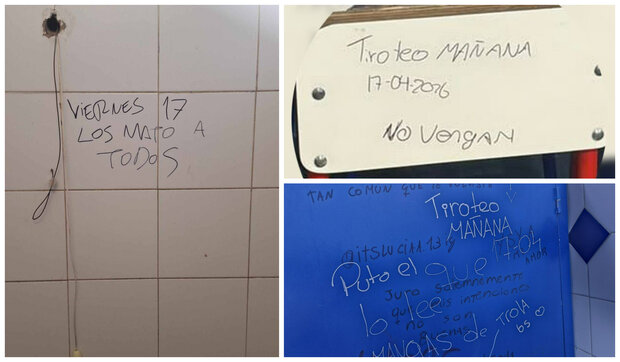 VIERNES 17
LOS MATO A
TODOS
Tiroteo MAÑANA
17-04-2026
NO VENGAN
TAN COMUN QUE
Tiroteo
MAÑANA
17-04
@itslucian.134
Puto el que
lo lee
Juro solemnemente
que mis intenciones
no son
buenas
MANGAS de TROLA
bs